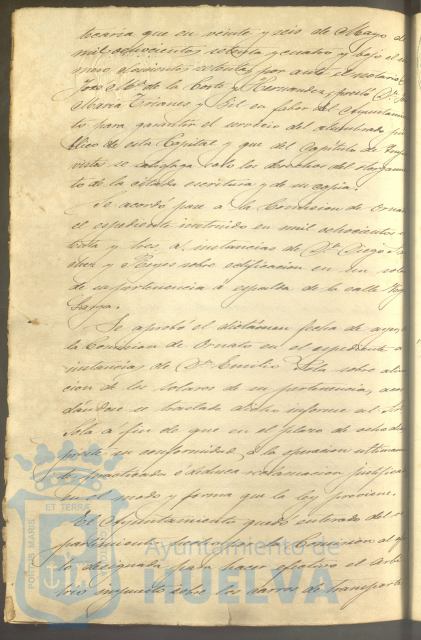 tecaria que en veinte y seis de Mayo de
mil ochocientos setenta y cuatro y bajo el
por ante el notario
José Mª de la Corte y Hernandez, prestó Dn
Maria Trianes y Gil en fabor del Ayuntamien
to para garantir el servicio del alumbrado pu
blico de esta Capital y que del Capitulo de
se satisfaga solo los derechos del otorgamien
to de la citada escritura y de su copia.
Se acordó pase a la Comision de Ornato
el espediente instruido en mil ochocientos
y tres, a instancias de Dn Diego
y Reyes sobre edificacion en un solar
de su pertenencia á espalda de la calle

Se aprobó el dictámen fecha de
la Comision de Ornato en el espediente a
instancias de Dn Emilio sobre
cion de los solares de su pertenencia, acor
dándose se traslade dicho informe al
á fin de que en el plazo de ocho dias
preste su conformidad á la
practicada ó deduzca reclamacion justificada
en el modo y forma que la ley previene.
El Ayuntamiento quedó enterado del re
partimiento hecho por la Comision
designada para hacer efectivo el arbi
trio impuesto sobre los carros de transporte
PORTUS MARIS
ET TERRÆ
Ayuntamiento de
HUELVA